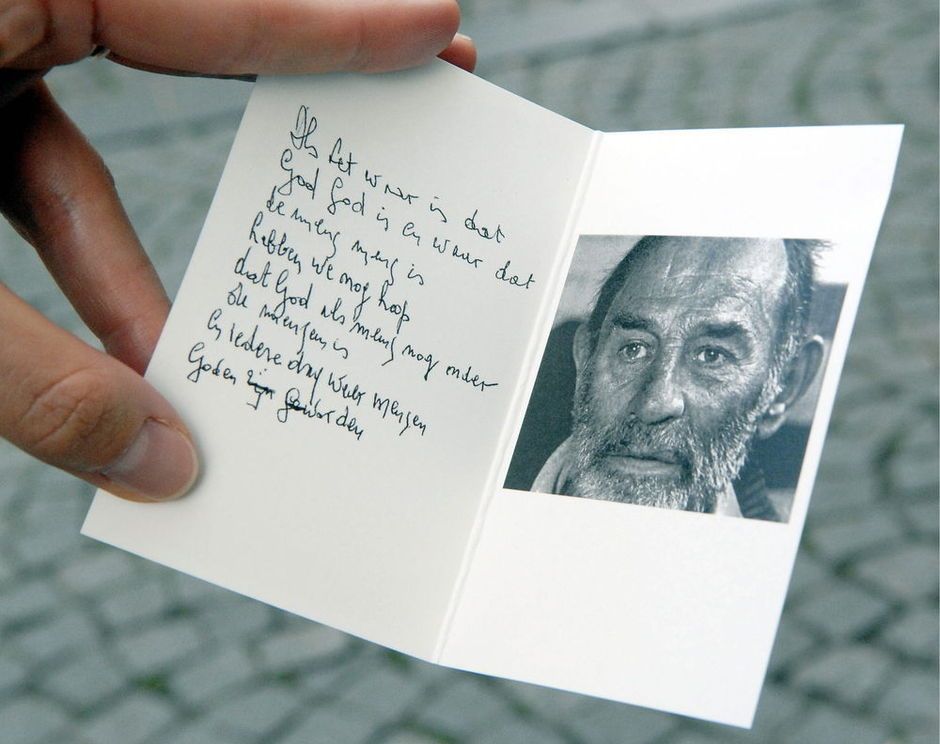 Als het waar is dat
God God is en waar dat
de mens mens is
hebben we nog hoop
dat God als mens nog onder
de mensen is
En iedere dag weer mensen
Goden zijn geworden